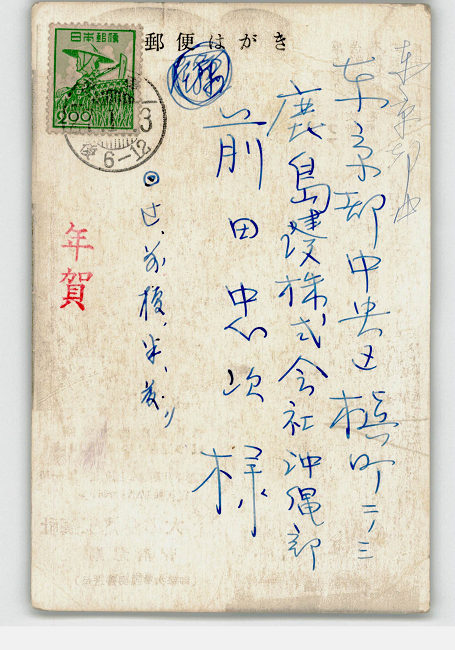 郵便はがき
日本郵便
2.00
3
6-12
東京都中
東京都中央区槇町二ノ三
鹿島建設株式会社沖縄部
前田忠次様
年賀